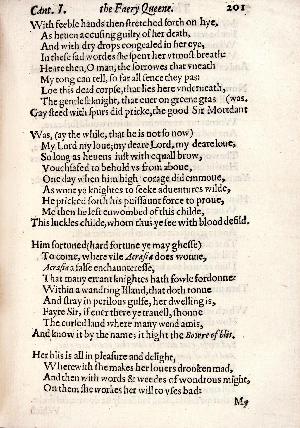 Cant. I. the Faery Queene. 201
With feeble hands then stretched forth on hye,
As heuen accusing guilty of her death,
And with dry drops congealed in her eye,
In these sad wordes she spent her vtmost breath:
Heare then, O man, the sorrowes that vneath
My tong can tell, so far all sence they pas:
Loe this dead corpse, that lies here vnderneath,
The gentlest knight, that euer on greene gras (was.
Gay steed with spurs did pricke, the good Sir Mortdant
Was, (ay the while, that he is not so now)
My Lord my loue; my deare Lord, my deare loue,
So long as heuens iust with equall brow,
Vouchsafed to behold vs from aboue,
One day when him high corage did emmoue,
As wont ye knights to seeke aduentures wilde,
He pricked forth his puissant force to proue,
Me then he left enwombed of this childe,
This luckles childe, whom thus ye see with blood defild.
Him fortuned (hard fortune ye may ghesse)
To come, where vile Acrasia does wonne,
Acrasia a false enchaunteresse,
That many errant knightes hath fowle fordonne:
Within a wandring Island, that doth ronne
And stray in perilous gulfe, her dwelling is,
Fayre Sir, if euer there ye trauell, shonne
The cursed land where many wend amis,
And know it by the name; it hight the Bowre of blis.
Her blis is all in pleasure and delight,
Wherewith she makes her louers dronken mad,
And then with words & weedes of wondrous might,
On them she workes her will to vses bad:
My